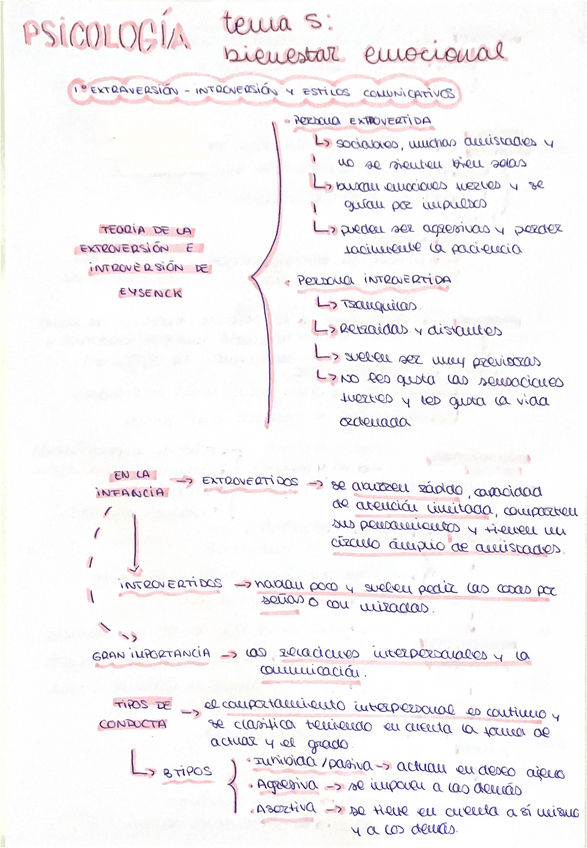 PSICOLOGÍA
tema 5:
bienestar emocional
1º EXTRAVERSIÓN - INTROVERSIÓN Y ESTILOS COMUNICATIVOS
TEORÍA DE LA
EXTROVERSIÓN E
INTROVERSIÓN DE
EYSENCK
• PERSONA EXTROVERTIDA
↳ sociables, muchas amistades y
no se sienten bien solas
↳ buscan emociones fuertes y se
guían por impulsos
↳ pueden ser agresivas y perder
facilmente la paciencia
• PERSONA INTROVERTIDA
↳ Tranquilas.
↳ Retraidas y distantes
↳ suelen ser muy previsoras
↳ NO les gusta las sensaciones
fuertes y les gusta la vida
ordenada
EN LA
INFANCIA
→ EXTROVERTIDOS → se aburren rápido, capacidad
de atención limitada, comparten
sus pensamientos y tienen un
círculo ámplio de amistades.
INTROVERTIDOS → hablan poco y suelen pedir las cosas por
señas o con miradas.
GRAN IMPORTANCIA → las relaciones interpersonales y la
comunicación.
TIPOS DE
CONDUCTA
→ el comportamiento interpersonal es continuo y
se clasifica teniendo en cuenta la forma de
actuar y el grado.
↳ 3 TIPOS
• Inhibida / pasiva → actúan en deseo ajeno
• Agresiva → se imponen a los demás
• Asertiva → se tiene en cuenta a sí mismo
y a los demás.